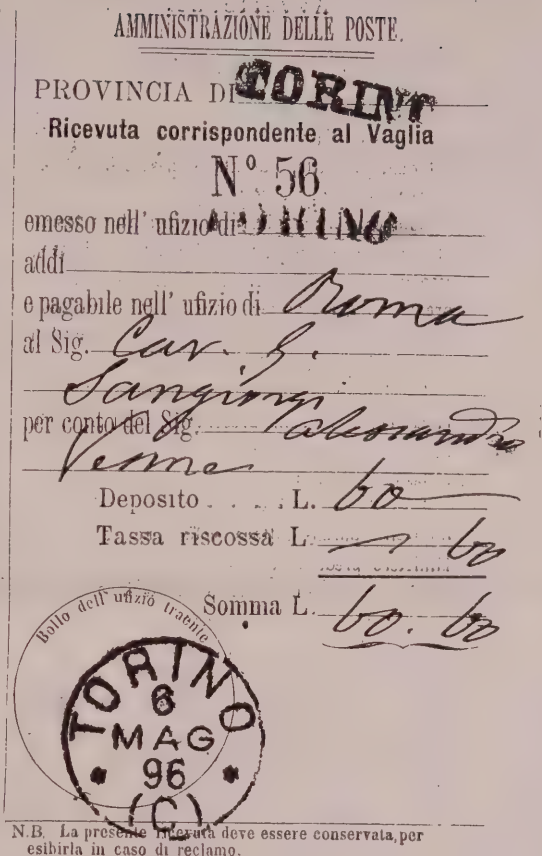 AMMINISTRAZIONE DELLE POSTE.
PROVINCIA DI TORINO
Ricevuta corrispondente al Vaglia
N.° 56
emesso nell' ufizio di TORINO
addi
e pagabile nell' ufizio di Roma
al Sig. Cav. G.
Sangiorgi
per conto del Sig. Alessandro
Vesme
Deposito . . . . L. 60
Tassa riscossa L. — 60
Somma L. 60. 60
Bollo dell' ufizio traente
TORINO
6
MAG
96
(C)
N.B. La presente ricevuta deve essere conservata, per
esibirla in caso di reclamo.